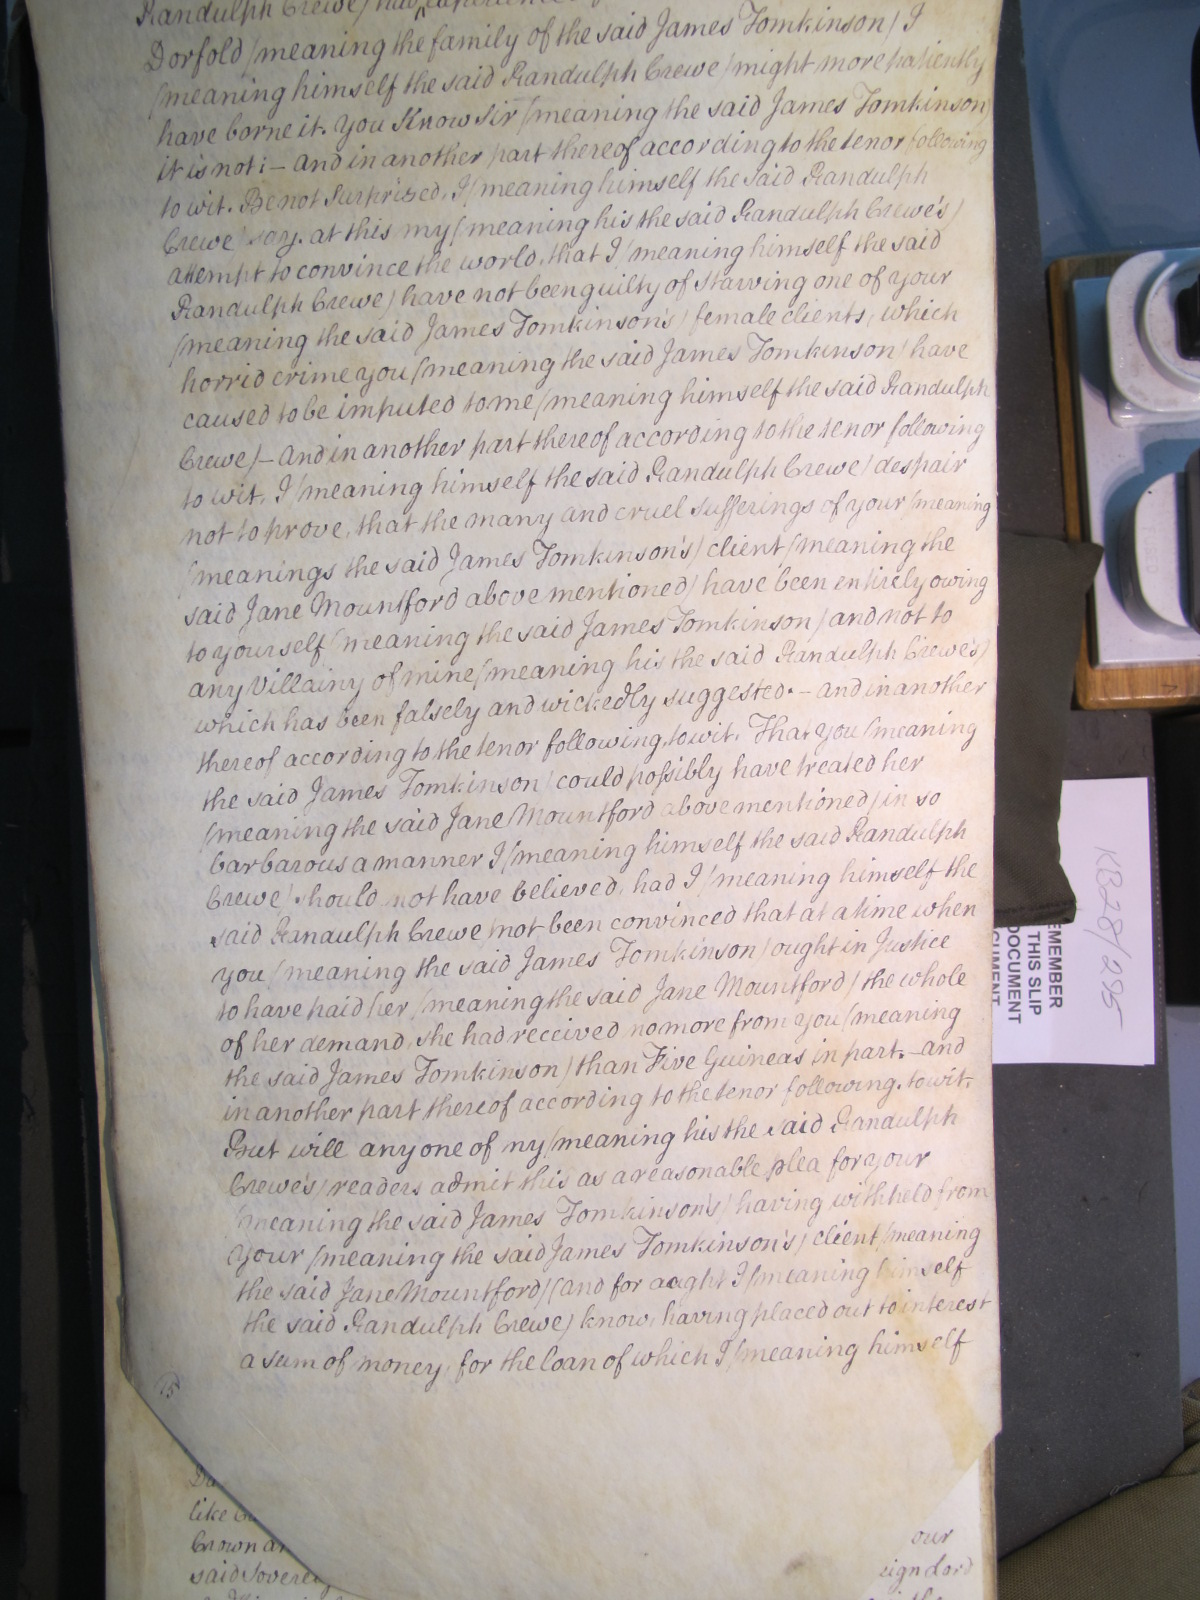 Randulph Crewe/ had experience
Dorfold /meaning the family of the said James Tomkinson/ I
/meaning himself the said Randulph Crewe/ might more patiently
have borne it. You Know Sir /meaning the said James Tomkinson
it is not: – and in another part thereof according to the tenor following
to wit. Be not Surprized, I /meaning himself the said Randulph
Crewe/ say, at this my /meaning his the said Randulph Crewe's/
attempt to convince the world, that I /meaning himself the said
Randulph Crewe/ have not been guilty of starving one of your
/meaning the said James Tomkinson's/ female clients, which
horrid crime you /meaning the said James Tomkinson/ have
caused to be imputed to me /meaning himself the said Randulph
Crewe/ – and in another part thereof according to the tenor following
to wit, I /meaning himself the said Randulph Crewe/ despair
not to prove, that the many and cruel sufferings of your /meaning
/meanings the said James Tomkinson's/ client /meaning the
said Jane Mountford above mentioned/ have been entirely owing
to yourself /meaning the said James Tomkinson/ and not to
any Villainy of mine /meaning his the said Randulph Crewe's/
which has been falsely and wickedly suggested. – and in another
thereof according to the tenor following, to wit. That you /meaning
the said James Tomkinson/ could possibly have treated her
/meaning the said Jane Mountford above mentioned/ in so
barbarous a manner I /meaning himself the said Randulph
Crewe/ should not have believed, had I /meaning himself the
said Randulph Crewe/ not been convinced that at a time when
you /meaning the said James Tomkinson/ ought in Justice
to have paid her /meaning the said Jane Mountford/ the whole
of her demand, she had received no more from you /meaning
the said James Tomkinson/ than Five Guineas in part. – and
in another part thereof according to the tenor following, to wit.
But will any one of my /meaning his the said Randulph
Crewe's/ readers admit this as a reasonable plea for your
/meaning the said James Tomkinson's/ having withheld from
your /meaning the said James Tomkinson's/ client /meaning
the said Jane Mountford/ (and for aught I /meaning himself
the said Randulph Crewe/ know, having placed out to interest
a sum of money, for the loan of which I /meaning himself
15
like
Crown an
said Sovere
our
eign Lord
KB28/295
EMEMBER
THIS SLIP
DOCUMENT
CUMENT